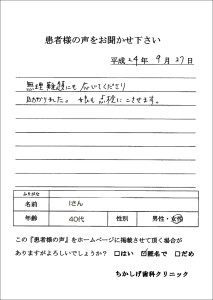 患者様の声をお聞かせ下さい
平成24年 9月27日
無理難題にも応じてくださり
助かりました。 娘も点検にこさせます。
ふりがな
名前 Iさん
年齢 40代 性別 男性・女性
この『患者様の声』をホームページに掲載させて頂く場合が
ありますがよろしいでしょうか? □はい ☑匿名で □だめ
ちかしげ歯科クリニック